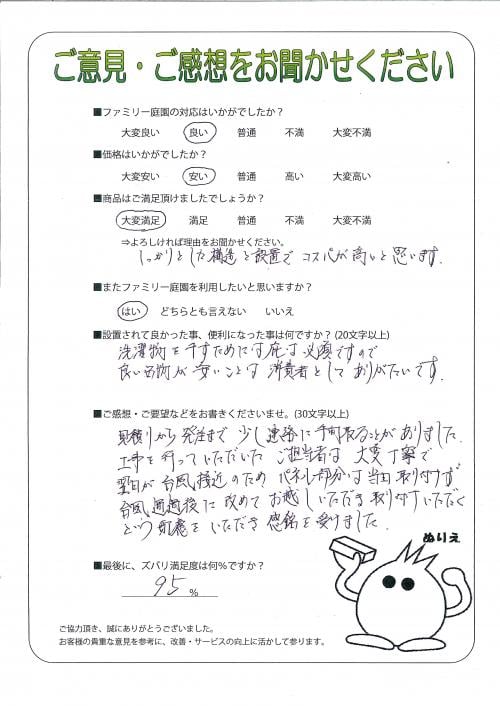 ご意見・ご感想をお聞かせください
■ファミリー庭園の対応はいかがでしたか？
大変良い 良い 普通 不満 大変不満
■価格はいかがでしたか？
大変安い 安い 普通 高い 大変高い
■商品はご満足頂けましたでしょうか？
大変満足 満足 普通 不満 大変不満
⇒よろしければ理由をお聞かせください。
しっかりとした構造と設置で コスパが高いと思います.
■またファミリー庭園を利用したいと思いますか？
はい どちらとも言えない いいえ
■設置されて良かった事、便利になった事は何ですか？(20文字以上)
洗濯物を干すためには庇は必須ですので
良い品物が安いことは 消費者として ありがたいです.
■ご感想・ご要望などをお書きくださいませ。(30文字以上)
見積りから発注まで 少し連絡に手間取ることがありました.
工事を行っていただいた ご担当者は 大変丁寧で
翌日が台風接近のため パネル部分は当日取付けず
台風通過後に改めてお越しいただき 取り付けいただく
という配慮をいただき 感銘を受けました.
ぬりえ
■最後に、ズバリ満足度は何%ですか？
95 %
ご協力頂き、誠にありがとうございました。
お客様の貴重な意見を参考に、改善・サービスの向上に活かして参ります。